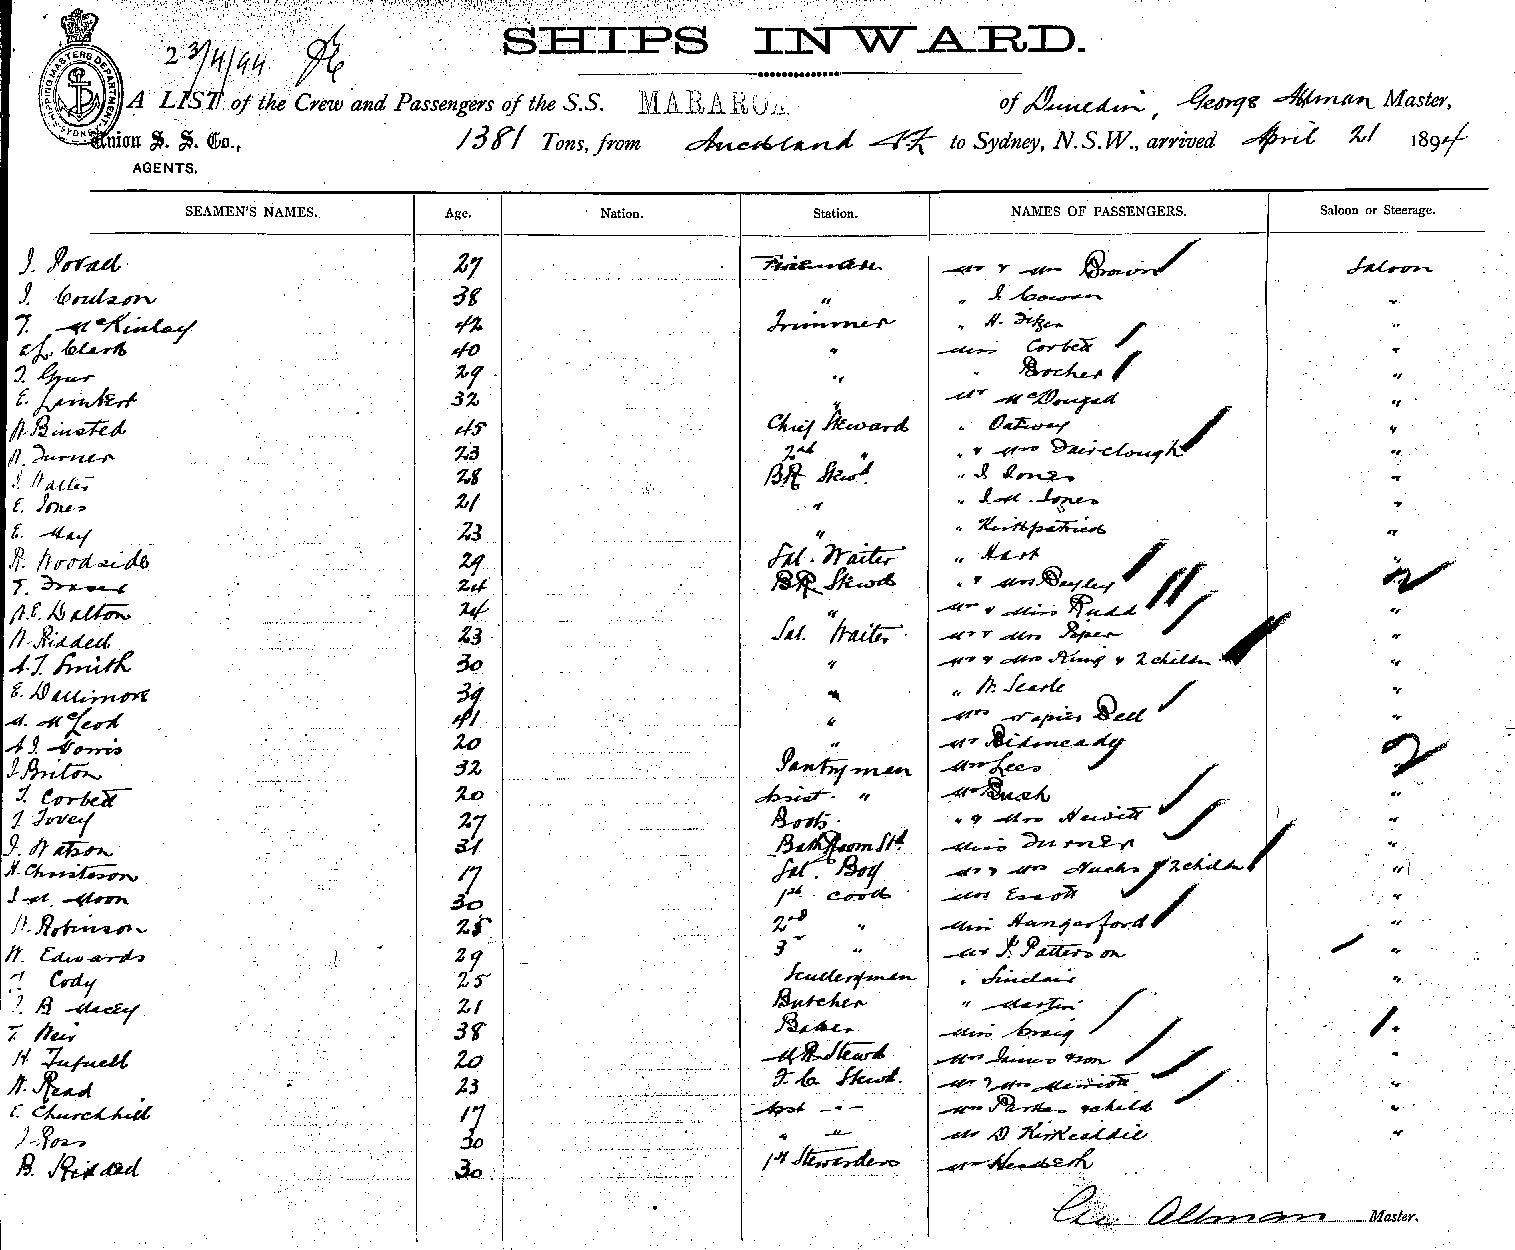 23/4/94
SHIPS INWARD.
A LIST of the Crew and Passengers of the S.S. MARAROA of Dunedin, George Allman Master,
Union S. S. Co., 1381 Tons, from Auckland NZ to Sydney, N.S.W., arrived April 21 1894
AGENTS.
SEAMEN'S NAMES. Age. Nation. Station. NAMES OF PASSENGERS. Saloon or Steerage.
27 Fireman Mr & Mrs Brown Saloon
J. Coulson 38 " " J. Cowan "
T. McKinlay 42 Trimmer " H. "
Clark 40 " Miss Corbett "
29 " " Bocher "
E. Lambert 32 " Mr McDougad "
W Binsted 45 Chief Steward " Oatway "
A. Turner 23 2nd " " & Mrs Fairclough "
J. Walter 28 BR Stewd. " J Jones "
E. Jones 21 " " J. M. Jones "
E. May 23 " " Kirkpatrick "
R. Woodside 29 Sal. Waiter " Hart "
T. Fraser 24 BR Stewd " & Mrs Bayley
A.E. Dalton 24 " Mr & Miss Rudd "
W. Riddell 23 Sal. Waiter Mr & Mrs Piper "
A.T. Smith 30 " Mr & Mrs King & 2 childn "
E. Dallimore 39 " " W. Searle "
M. McLeod 41 " Mrs Napier Bell "
A.J. Norris 20 " Mr
J Briton 32 Pantryman Mrs Lees
T. Corbett 20 Assist. " Mr Bush "
T Tovey 27 Boots " & Mrs Hewitt "
J. Watson 31 Bath Room Std. Miss Turner "
H. Christeson 17 Sal. Boy Mr & Mrs Hucks & 2 childn "
J. M. Moon 30 1st Cook Mrs "
W. Robinson 25 2nd " Miss Hungerford "
W. Edwards 29 3r " Mr P. Patterson "
Cody 25 Sculleryman " Sinclair "
J. B Macey 21 Butcher " Martin "
T. Weir 38 Baker Miss Craig "
H. Tufnell 20 MR Steward Mrs James & son "
W. Read 23 F. C. Stewd. Mr & Mrs "
E. Churchhill 17 Asst - " - Mrs Parkes & child "
J. Ross 30 " " Mr D Kirkcaldie "
B. Riddell 30 1st Stewardess Mr
Geo Allman Master.